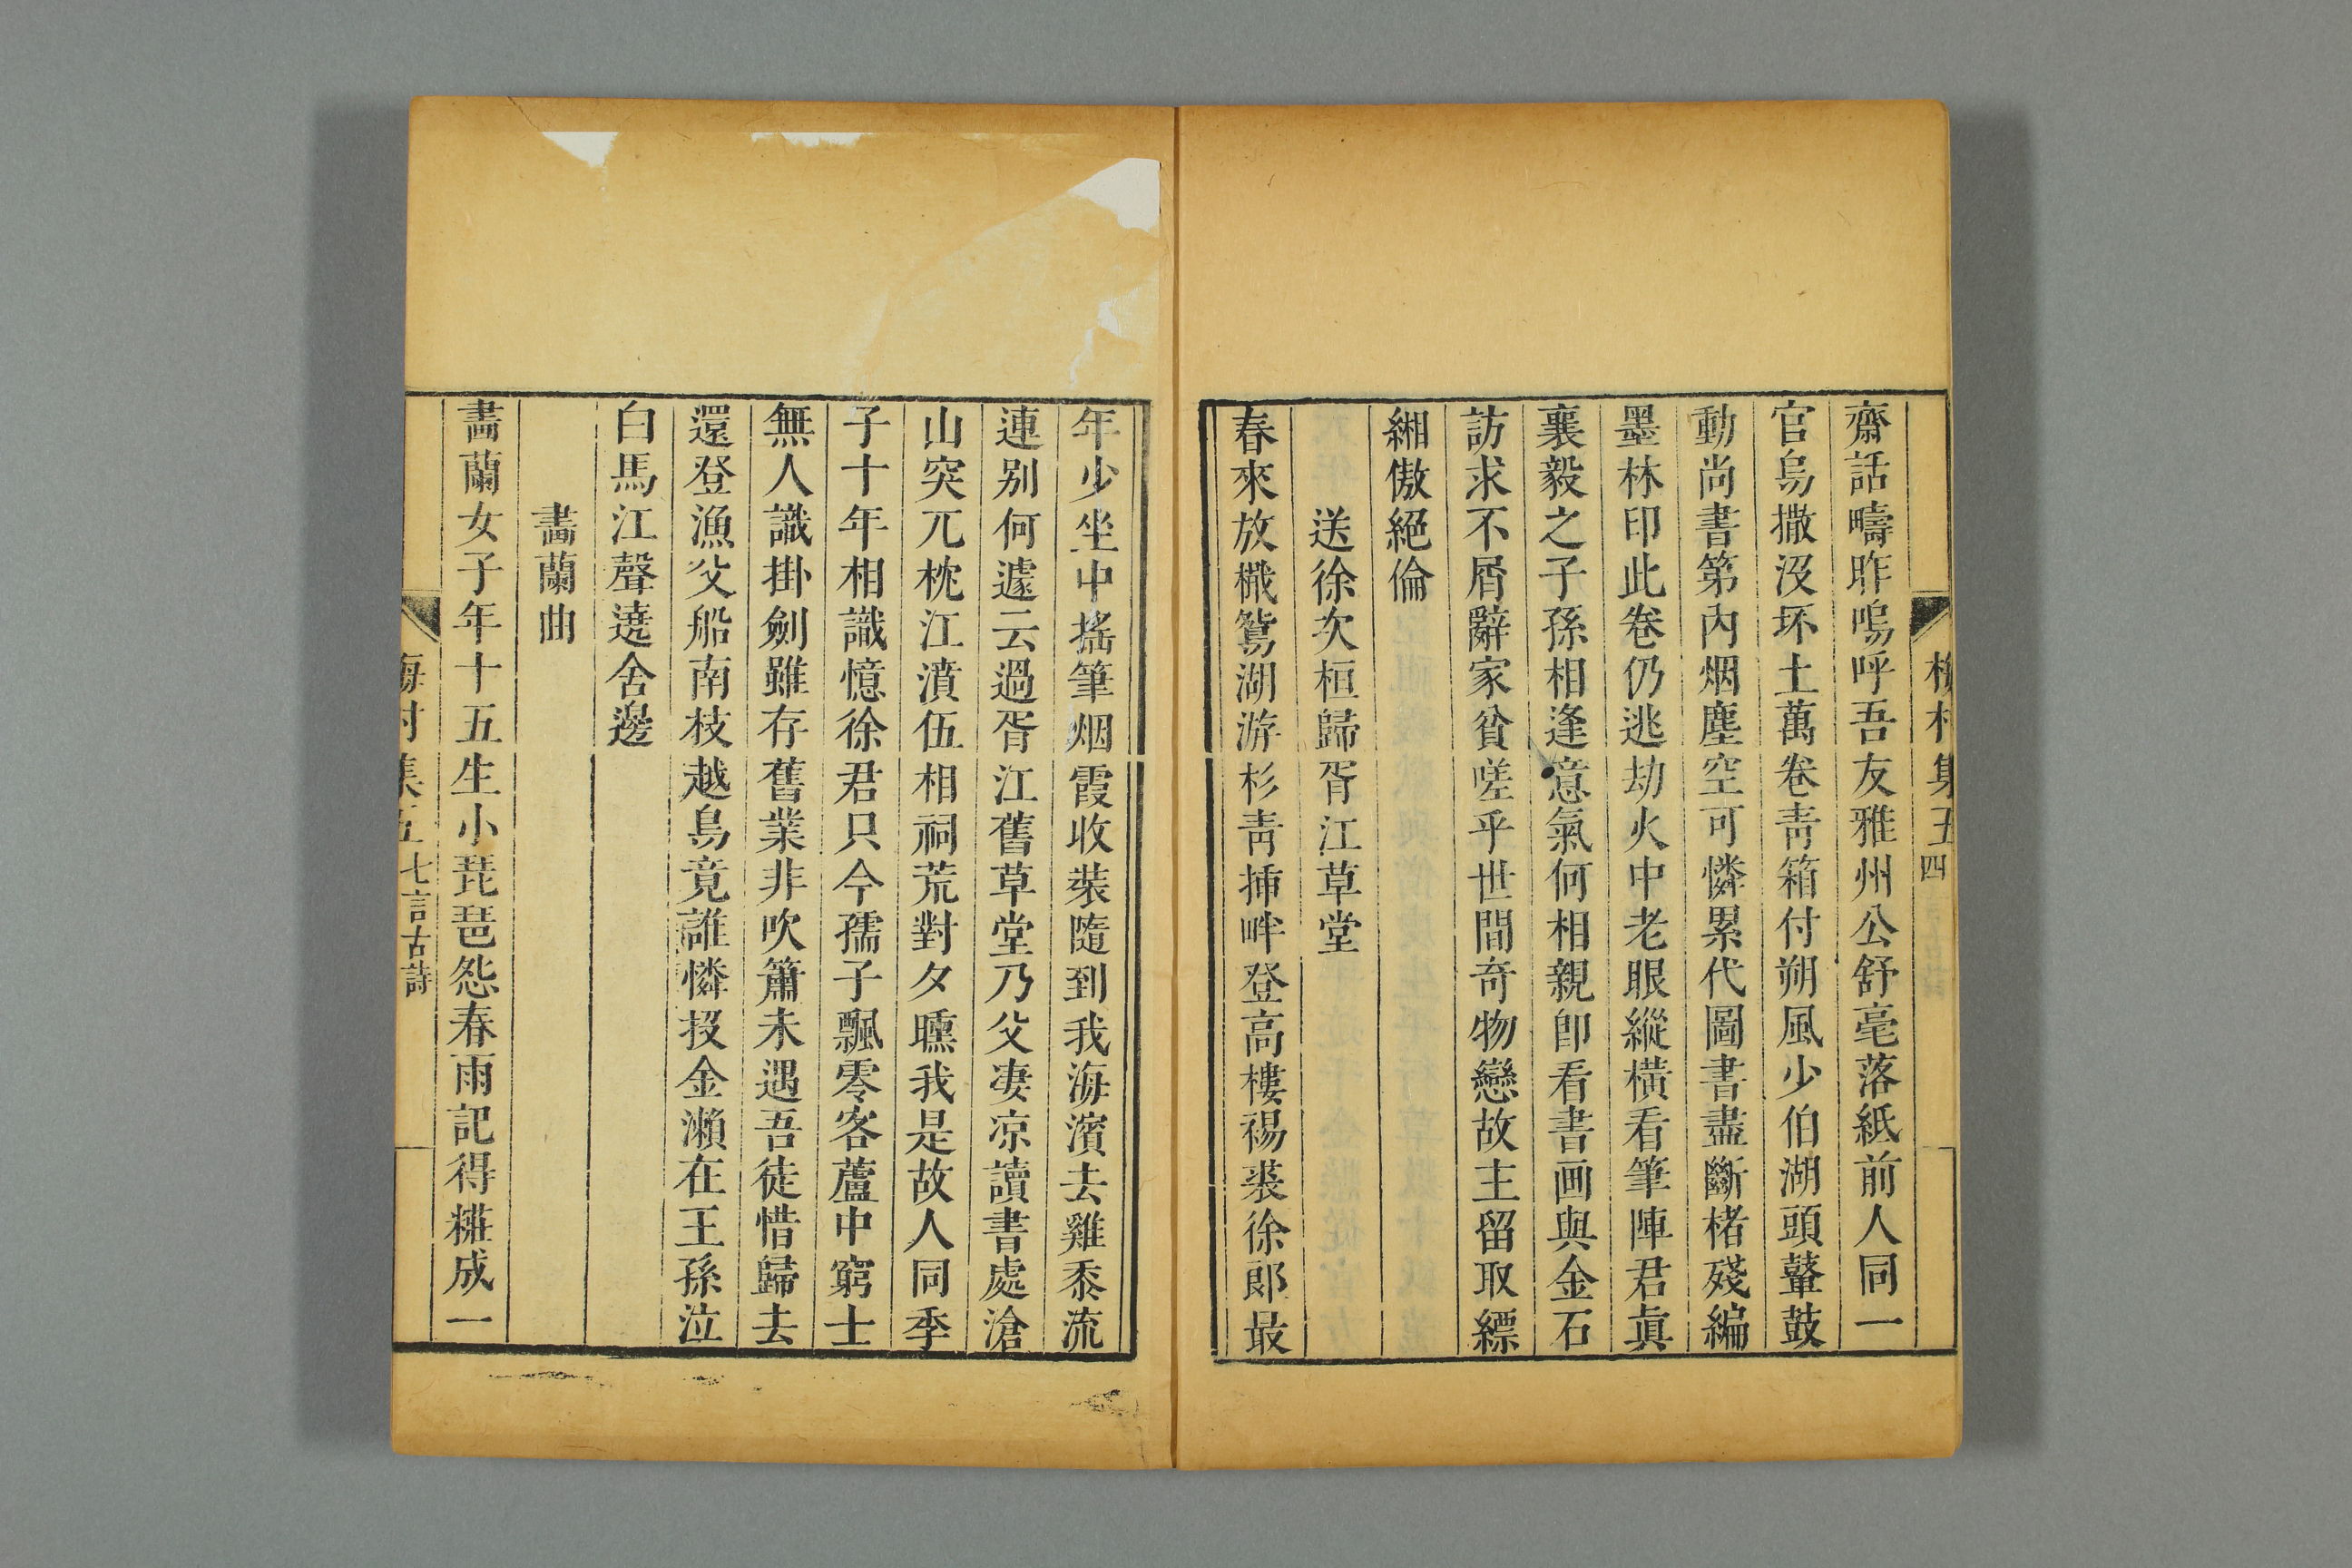 梅村集五 四
齋話疇昨嗚呼吾友雅州公舒毫落紙前人同一
官烏撒沒坏土萬卷靑箱付朔風少伯湖頭鼙鼓
動尚書第內烟塵空可憐累代圖書盡斷楮殘編
墨林印此卷仍逃劫火中老眼縱橫看筆陣君眞
襄毅之子孫相逢意氣何相親卽看書画與金石
訪求不屑辭家貧嗟乎世間奇物戀故主留取縹
緗傲絕倫
送徐次桓歸胥江草堂
春來放檝鴛湖游杉靑揷畔登高樓裼裘徐郎最
年少坐中搖筆烟霞收裝隨到我海濱去雞黍流
連别何遽云過胥江舊草堂乃父凄凉讀書處滄
山突兀枕江濆伍相祠荒對夕曛我是故人同季
子十年相識憶徐君只今孺子飄零客蘆中窮士
無人識掛劍雖存舊業非吹簫未遇吾徒惜歸去
還登漁父船南枝越鳥竟誰憐投金瀨在王孫泣
白馬江聲遶舍邊
畫蘭曲
畫蘭女子年十五生小琵琶怨春雨記得粧成一
梅村集五 七言古詩